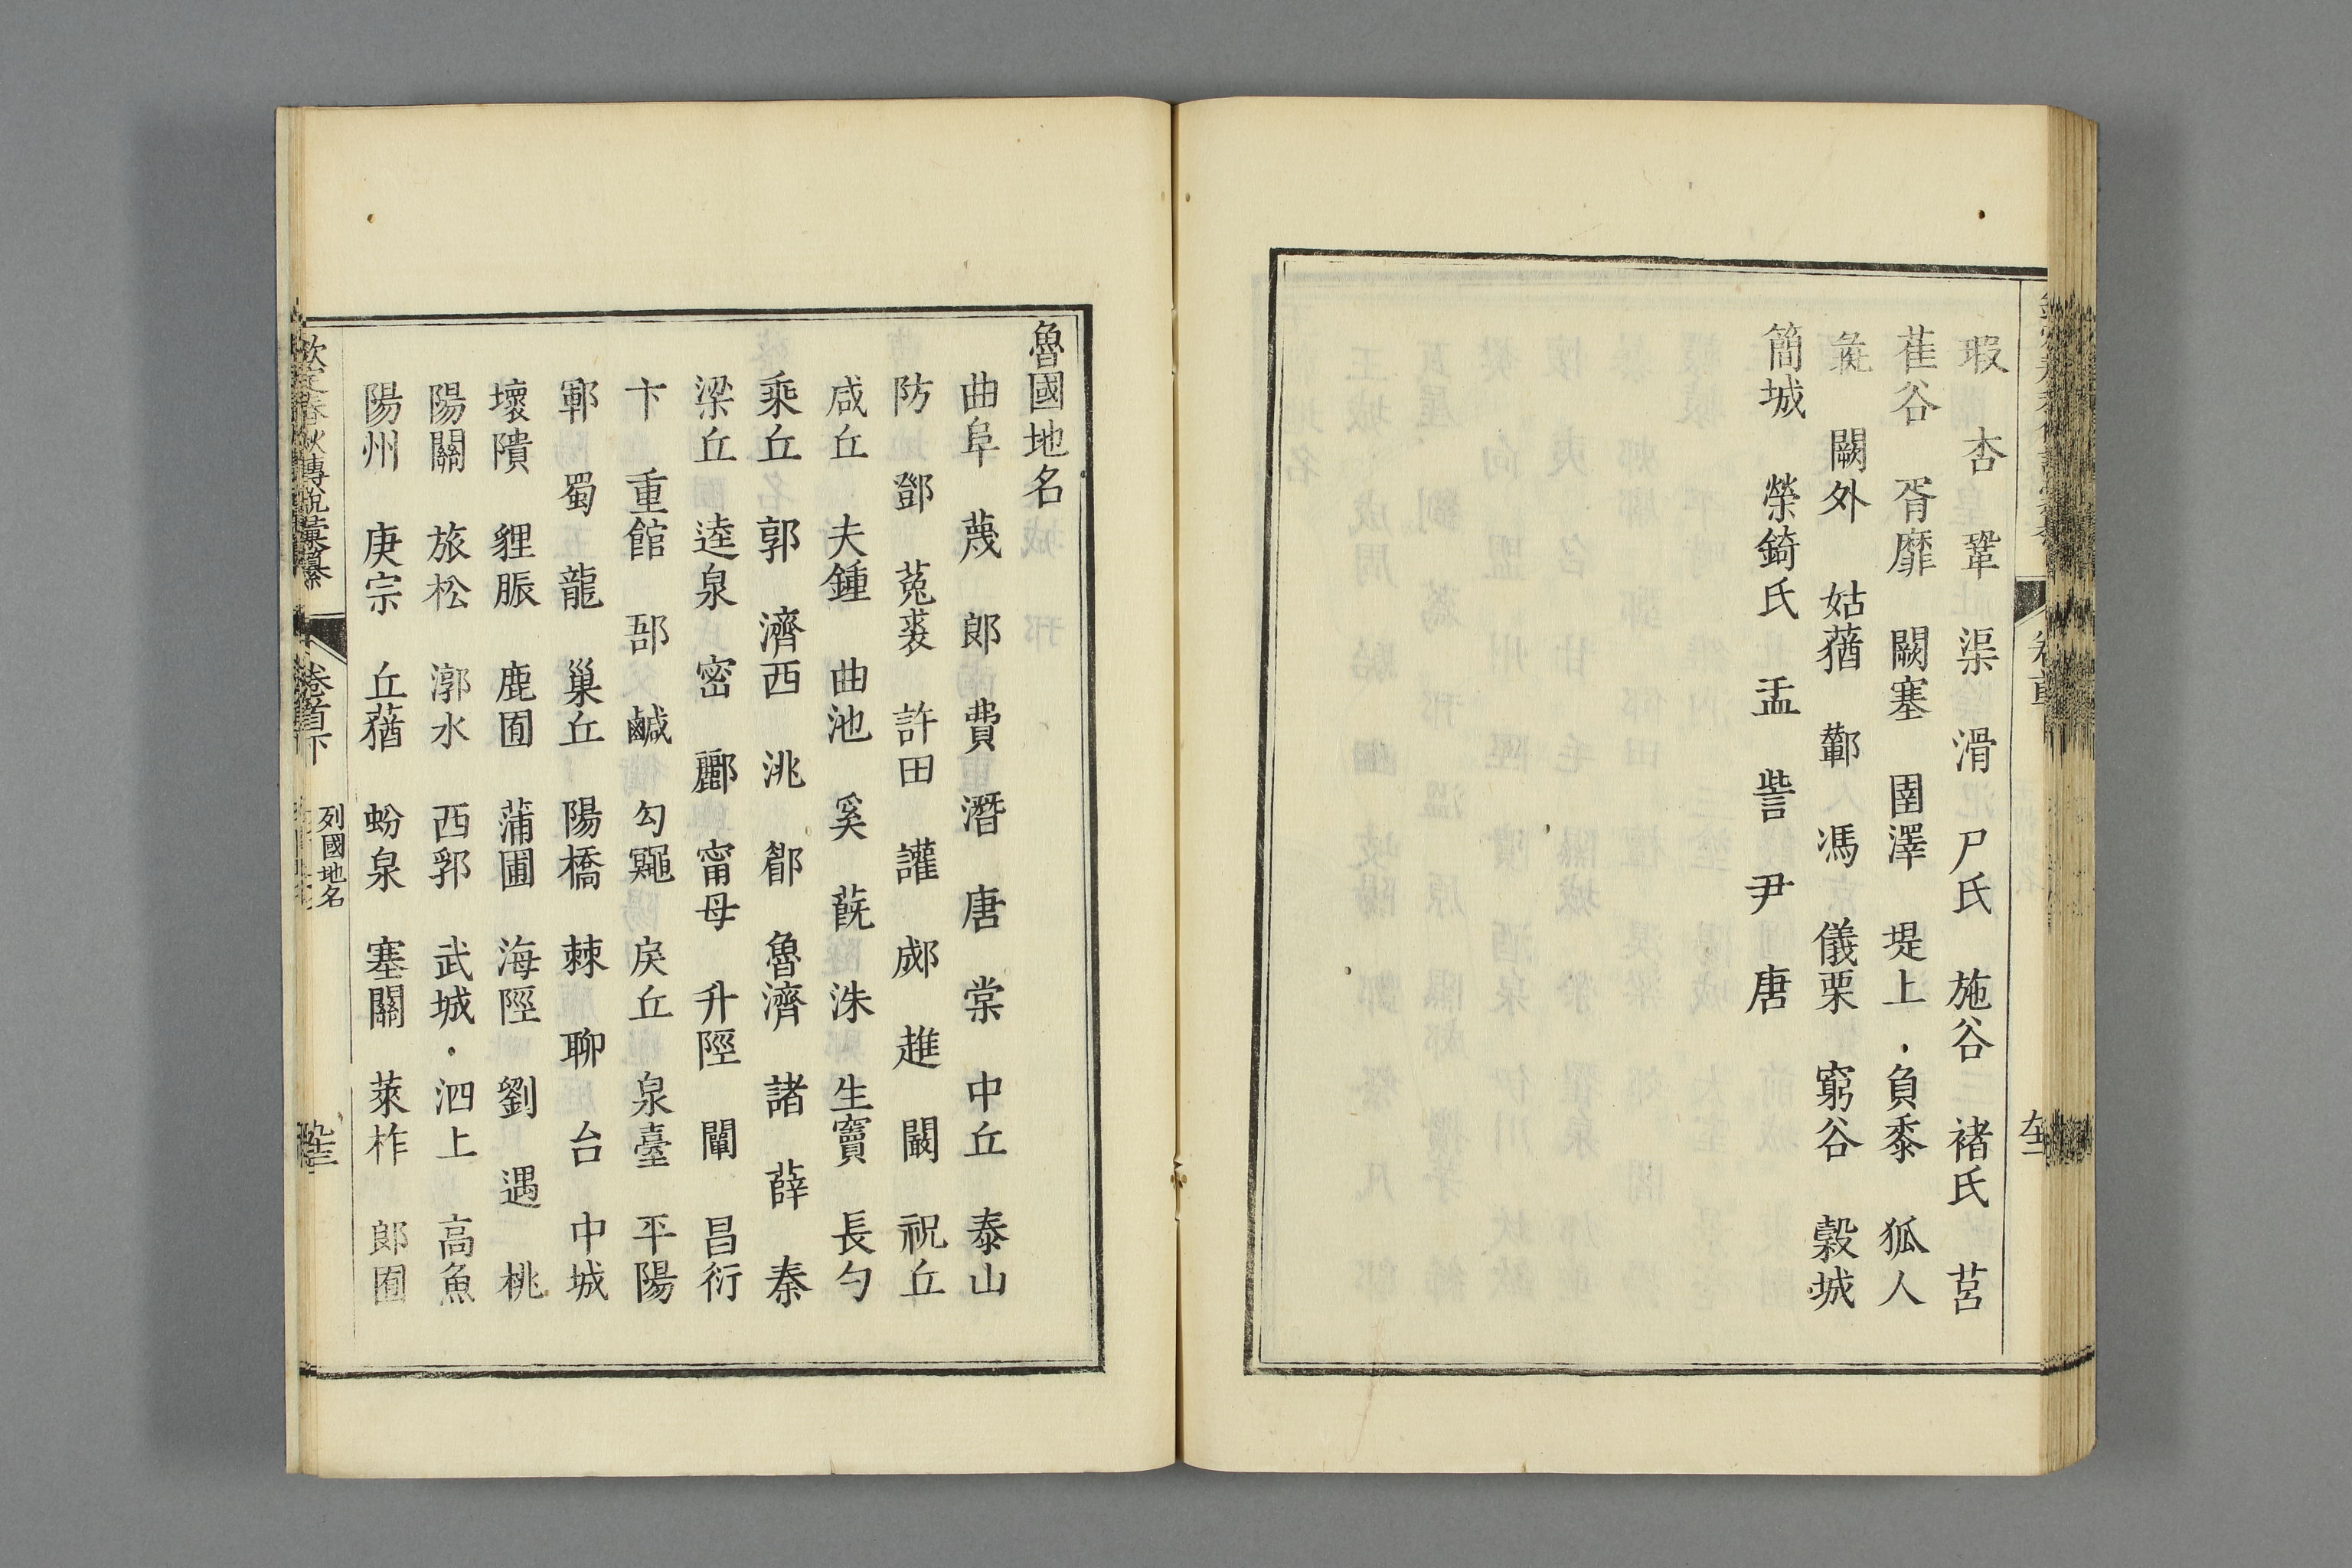 瑕 杏 鞏 渠 滑 尸氏 施谷 褚氏 莒
萑谷 胥靡 闕塞 圉澤 堤上 負黍 狐人
彘 闕外 姑蕕 鄻 馮 儀栗 窮谷 穀城
簡城 榮錡氏 盂 訾 尹 唐
魯國地名
曲阜 蔑 郎 費 潛 唐 棠 中丘 泰山
防 鄧 菟裘 許田 讙 郕 趡 闞 祝丘
咸丘 夫鍾 曲池 奚 蔇 洙 生竇 長勺
乘丘 郭 濟西 洮 郿 魯濟 諸 薛 秦
梁丘 逵泉 密 酈 甯母 升陘 闡 昌衍
卞 重館 郚 鹹 勾鼆 戾丘 泉臺 平陽
鄆 蜀 龍 巢丘 陽橋 棘 聊 台 中城
壞隤 貍脤 鹿囿 蒲圃 海陘 劉 遇 桃
陽關 旅松 漷水 西郛 武城 泗上 高魚
陽州 庚宗 丘蕕 蚡泉 塞關 萊柞 郎囿
欽定春秋傳說彙纂 卷首下 列國地名